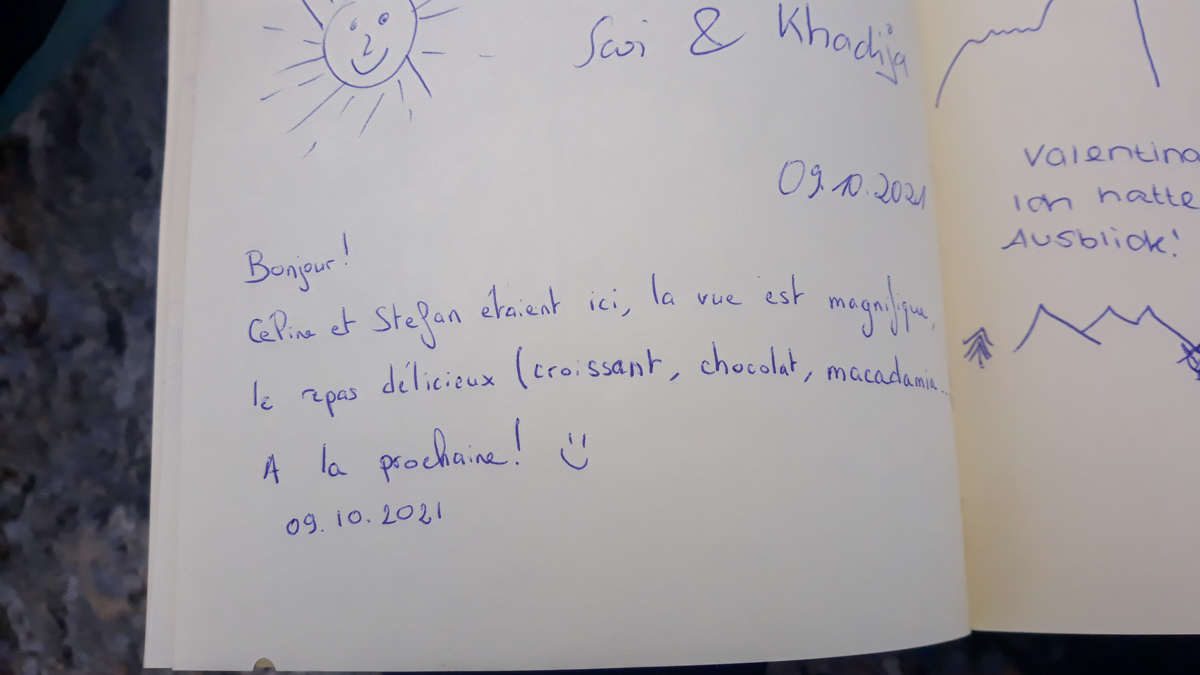 & Khadija
09.10.2021
Bonjour!
Céline et Stefan étaient ici, la vue est magnifique,
le repas délicieux (croissant, chocolat, macadamia...
A la prochaine!
09.10.2021
Valentina
Ich hatte
Ausblick!